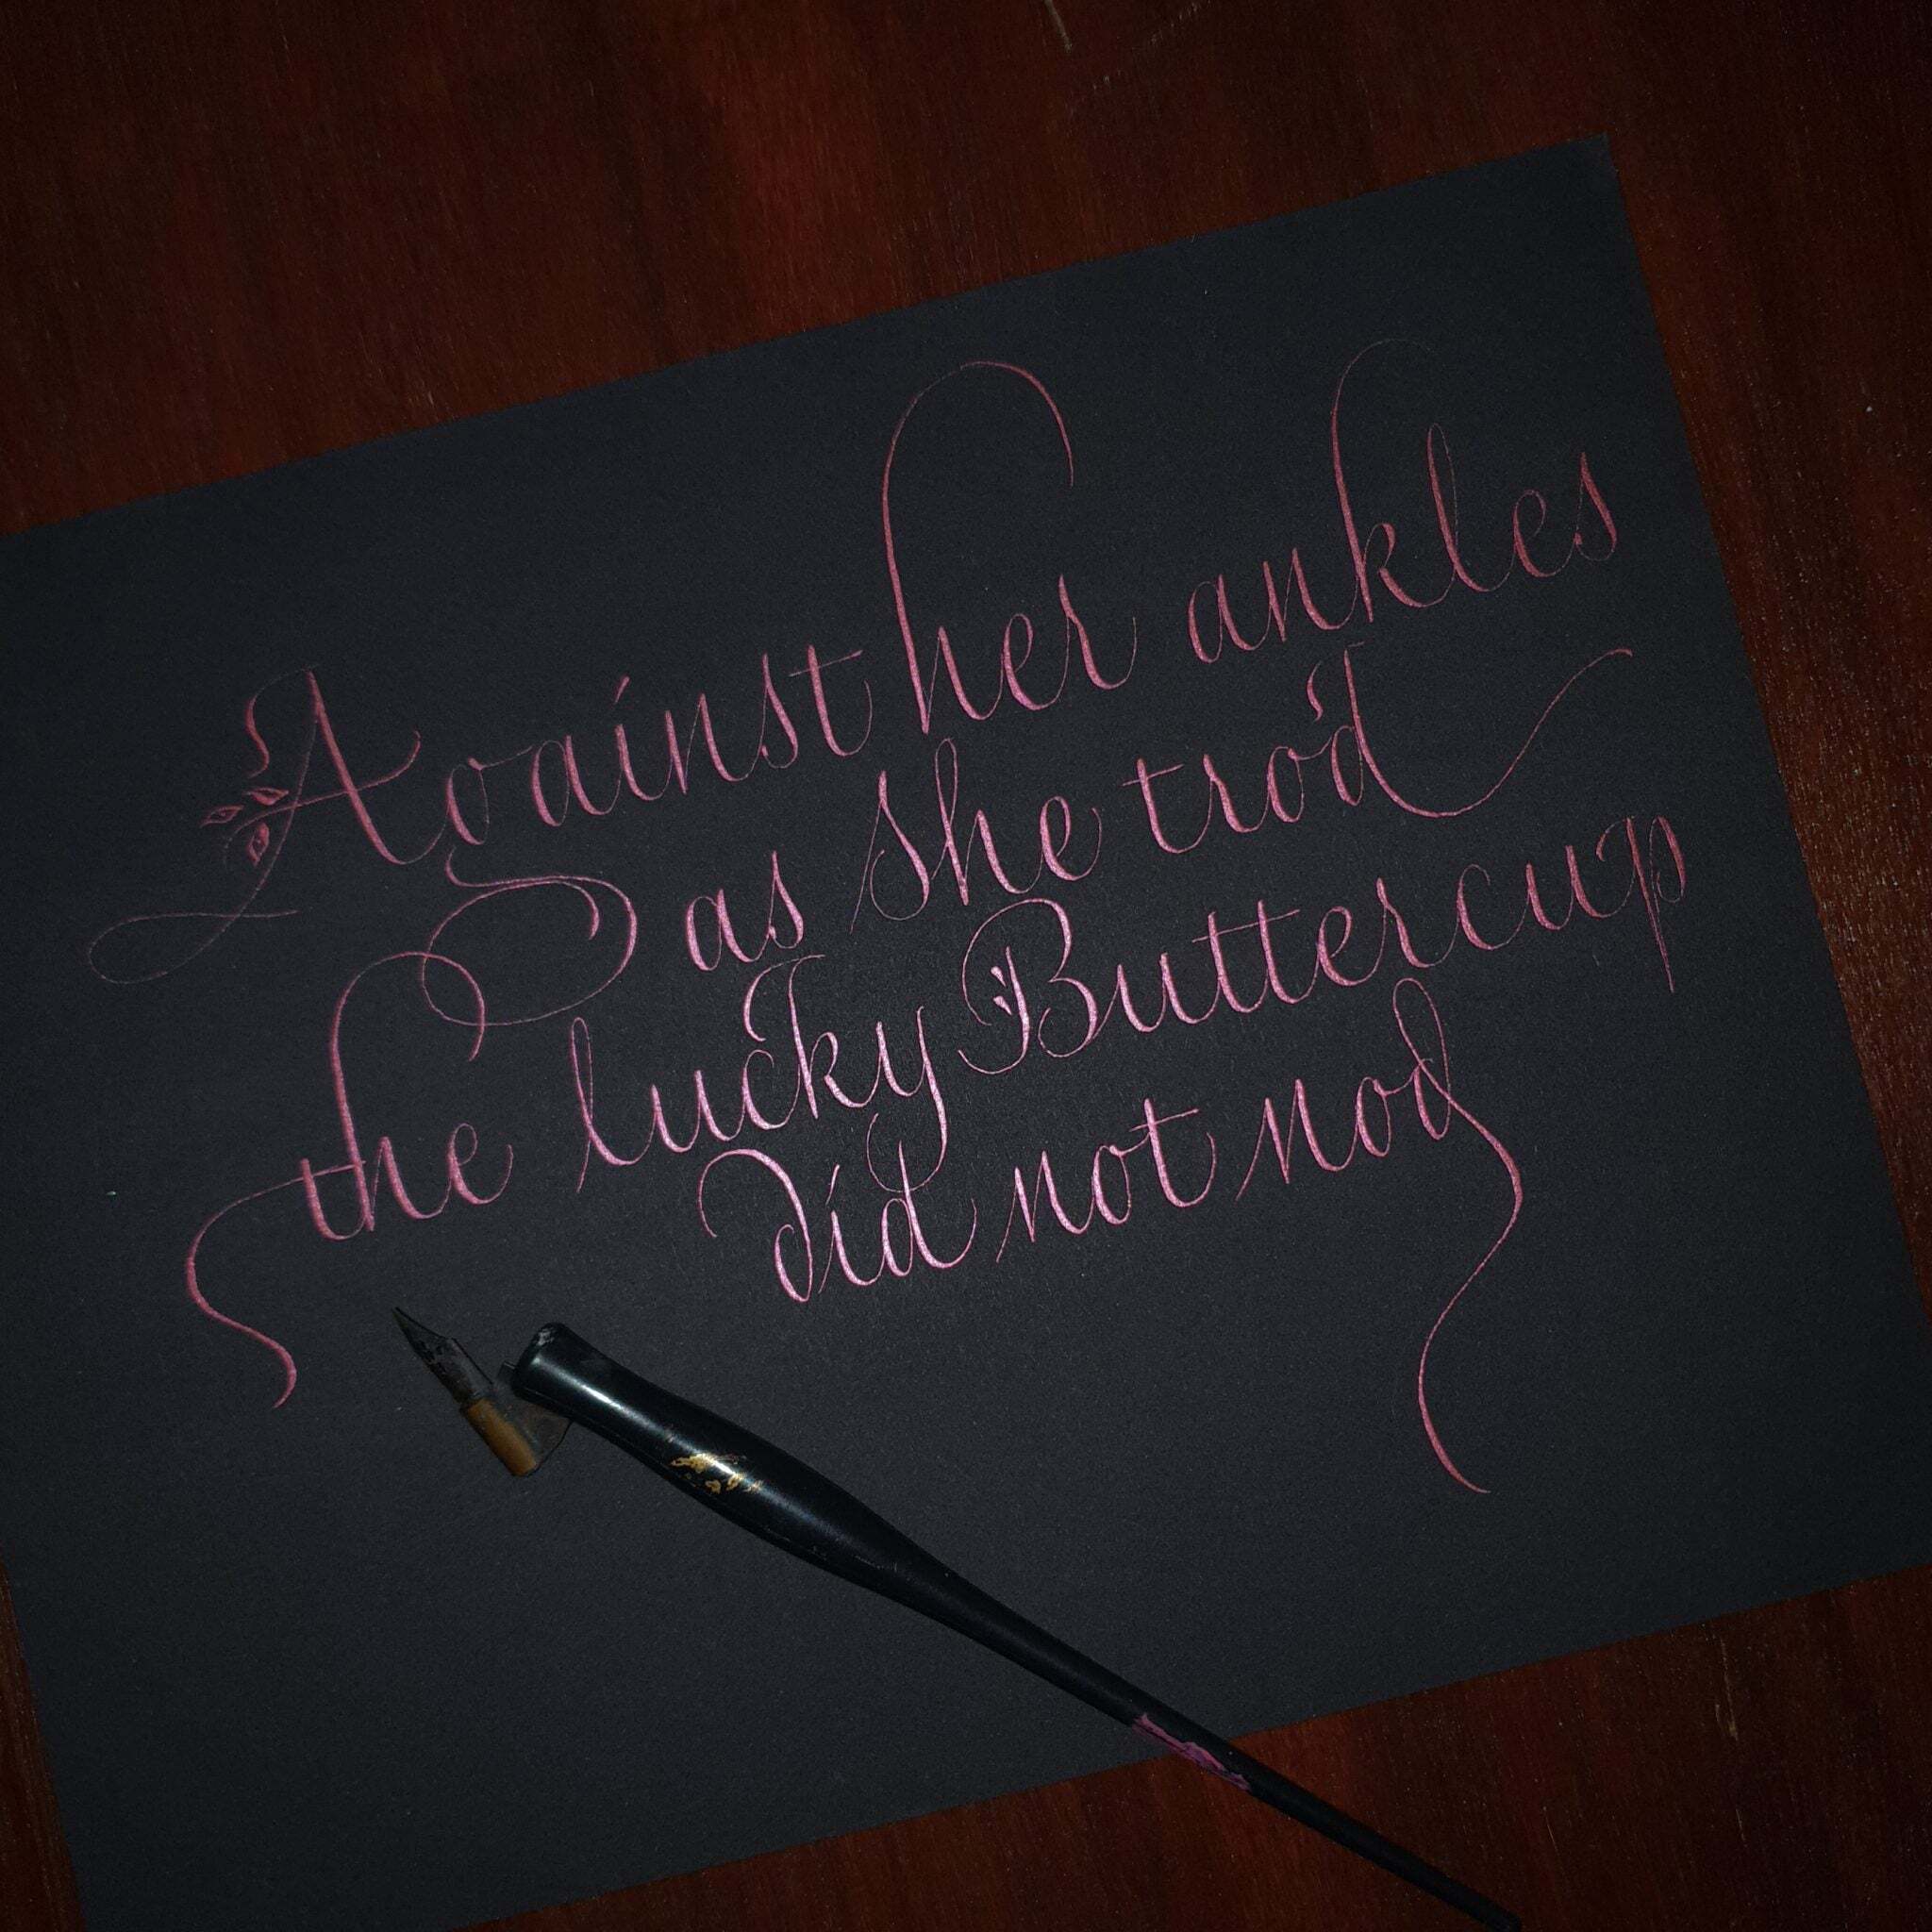 Against her ankles
as she trod
the lucky Buttercup
did not nod